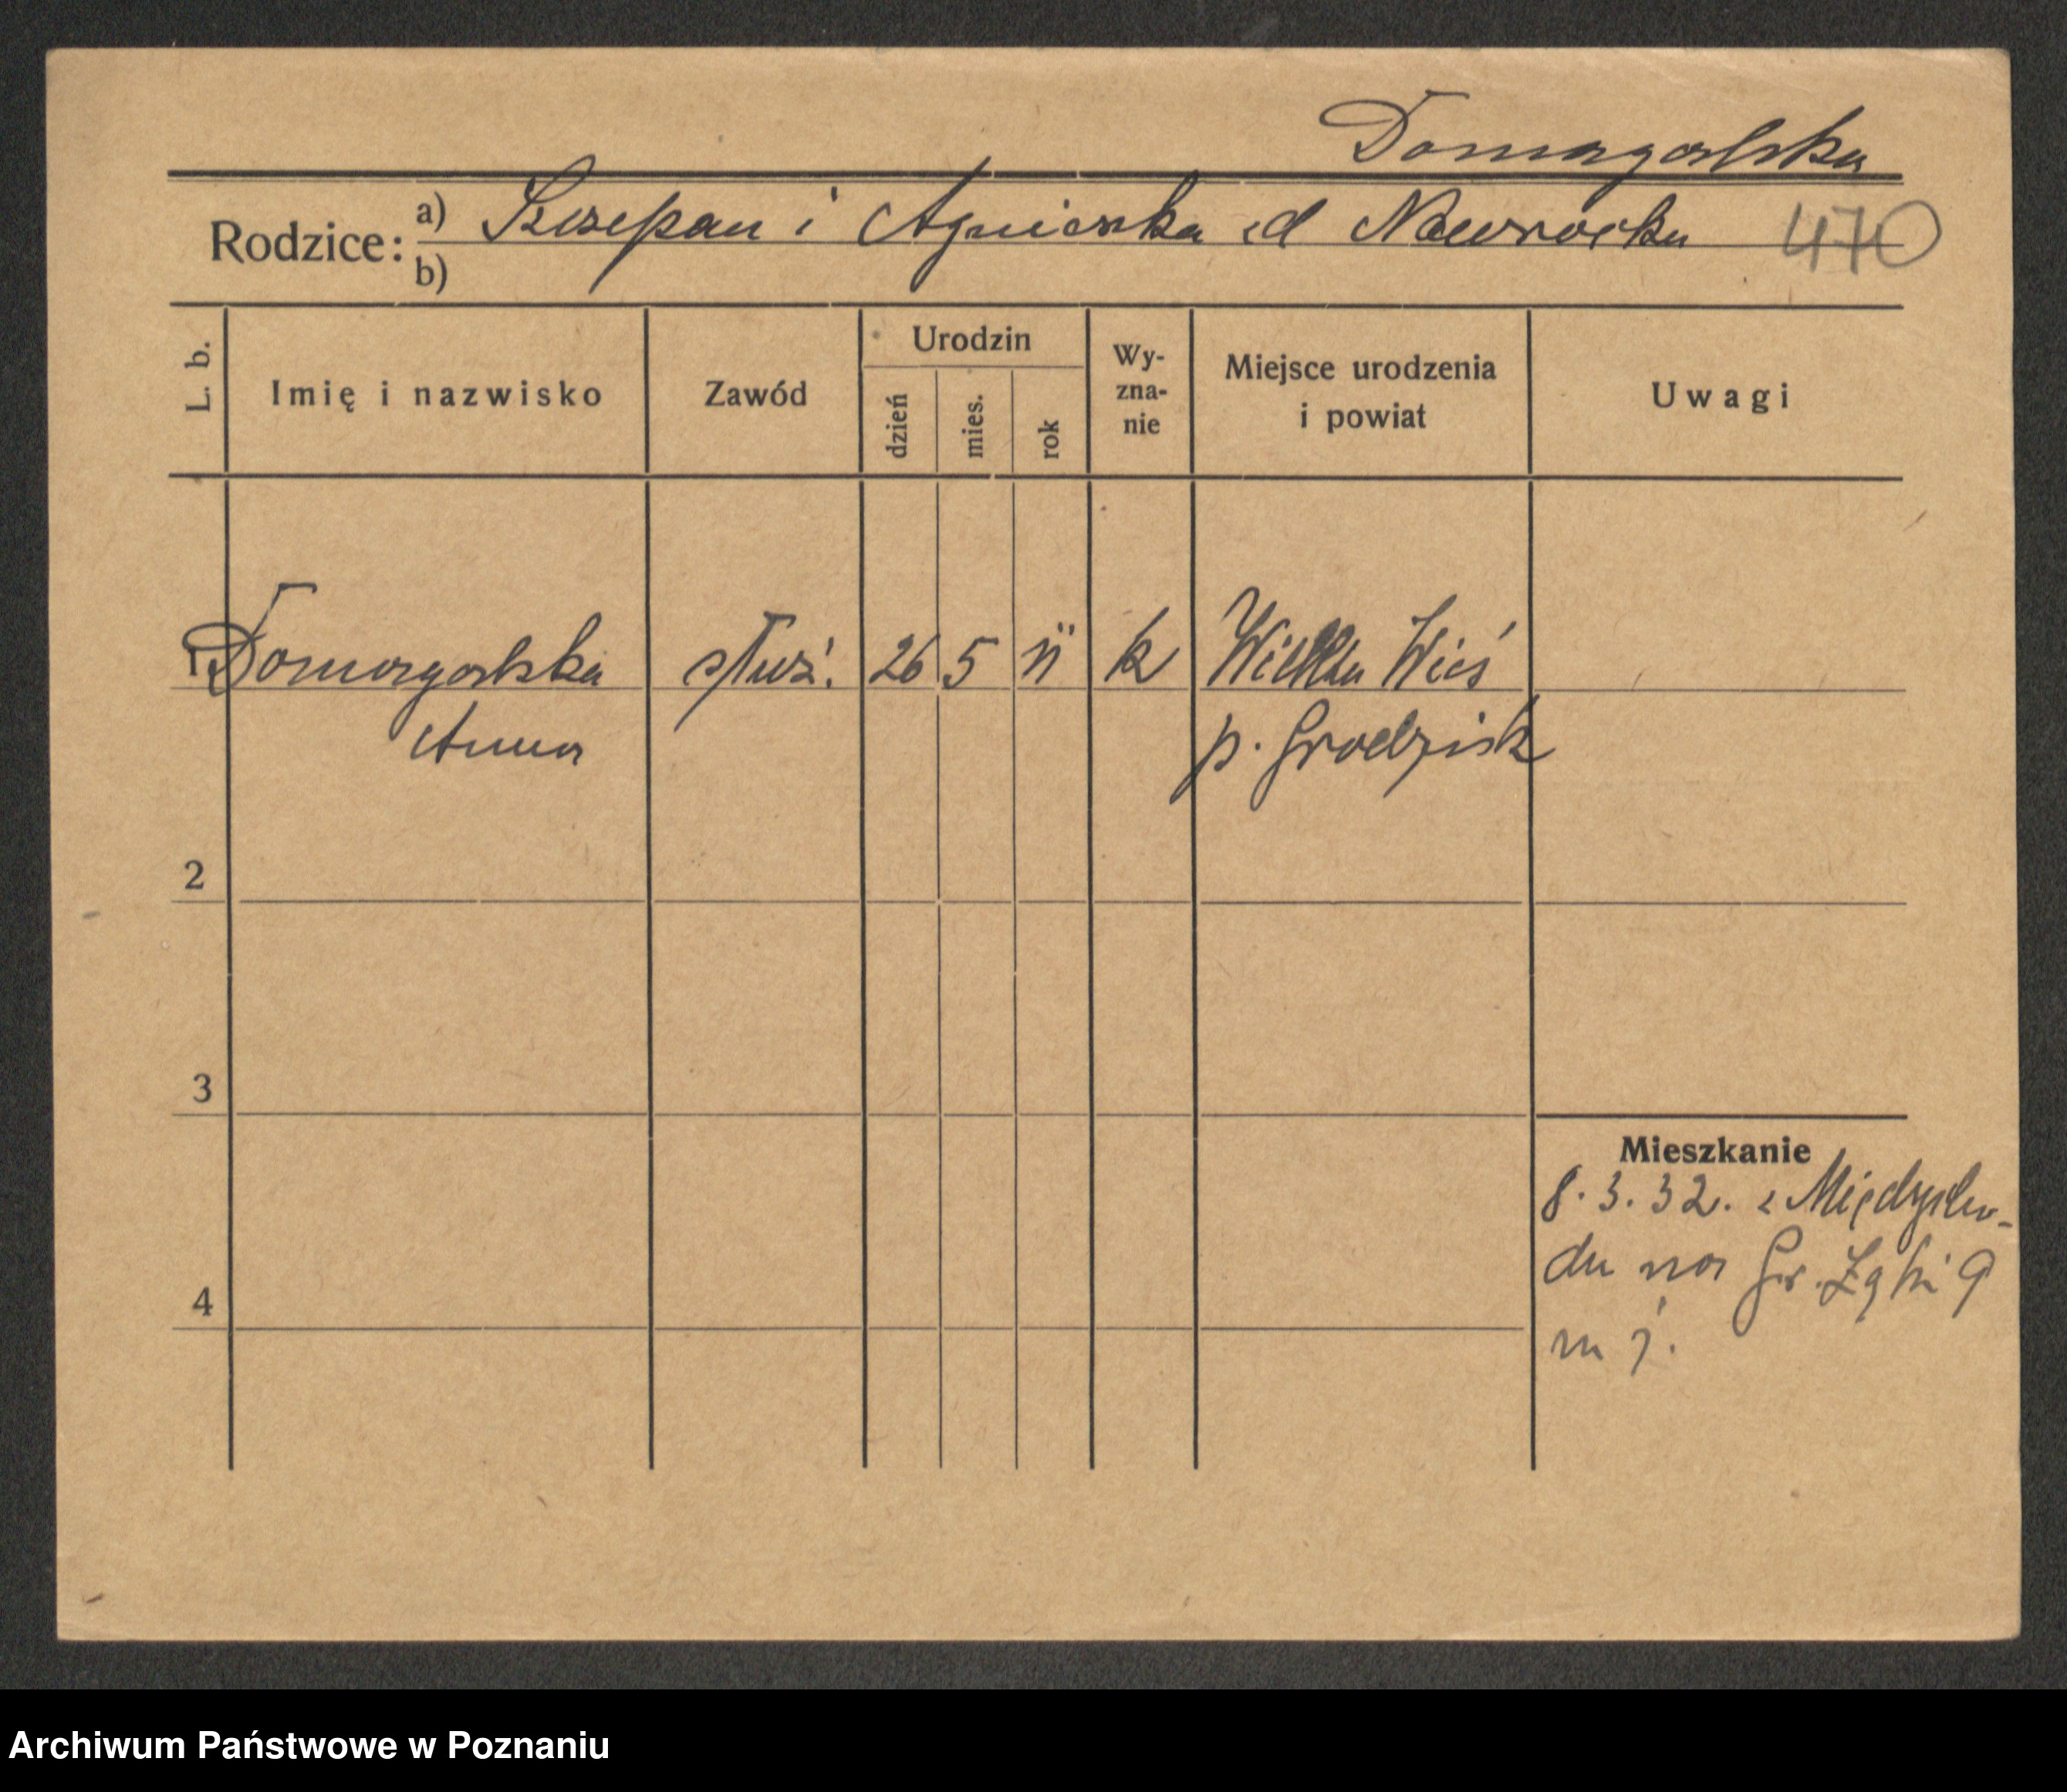 Domagalska
Rodzice: a) Szczepan i Agnieszka z d Nawrocka 470
b)
L. b. Imię i nazwisko Zawód Urodzin dzień mies. rok Wy-zna-nie Miejsce urodzenia i powiat Uwagi
1 Domagalska służ. 26 5 11 k Wielka Wieś
Anna p. Grodzisk
2
3
Mieszkanie
8.3.32. z Międzycho-
du na
4
m
Archiwum Państwowe w Poznaniu